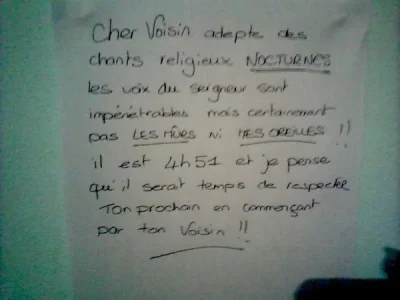 Cher Voisin adepte des
chants religieux NOCTURNES
les voix du seigneur sont
impénétrables mais certainement
pas LES MÛRS ni MES OREILLES !!
il est 4h51 et je pense
qu'il serait temps de respecter
Ton prochain en commerçant
par ton Voisin !!